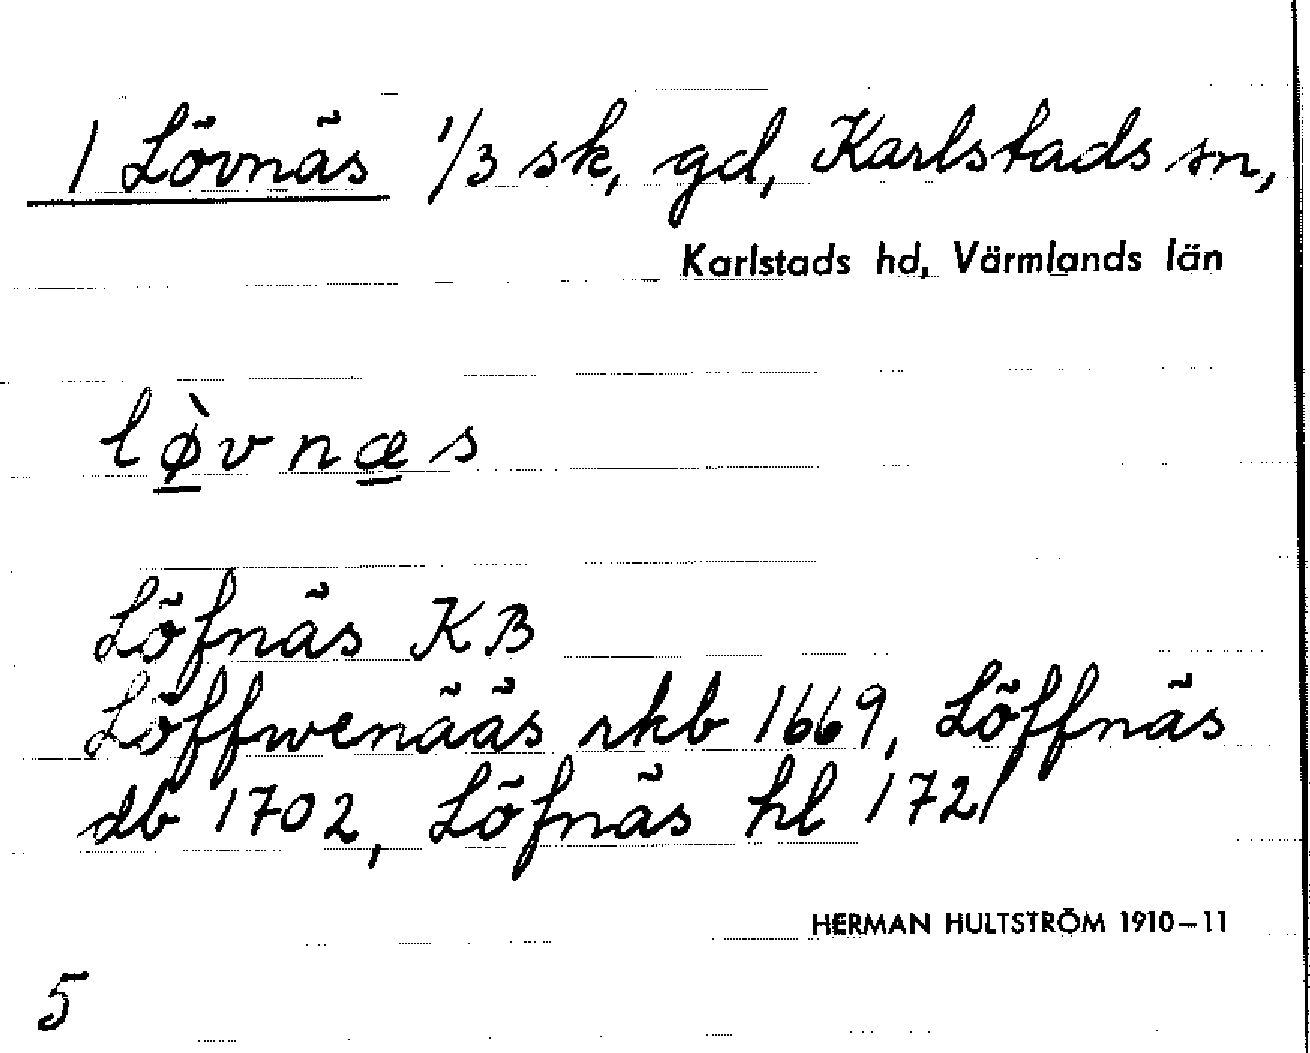 1 Lövnäs 1/3 sk, gd, Karlstads sn,
Karlstads hd, Värmlands län
lø̀vnæs
Löfnäs KB
Löffwenääs rkb 1669, Löffnäs
db 1702, Löfnäs hl 1721
HERMAN HULTSTRÖM 1910–11
5